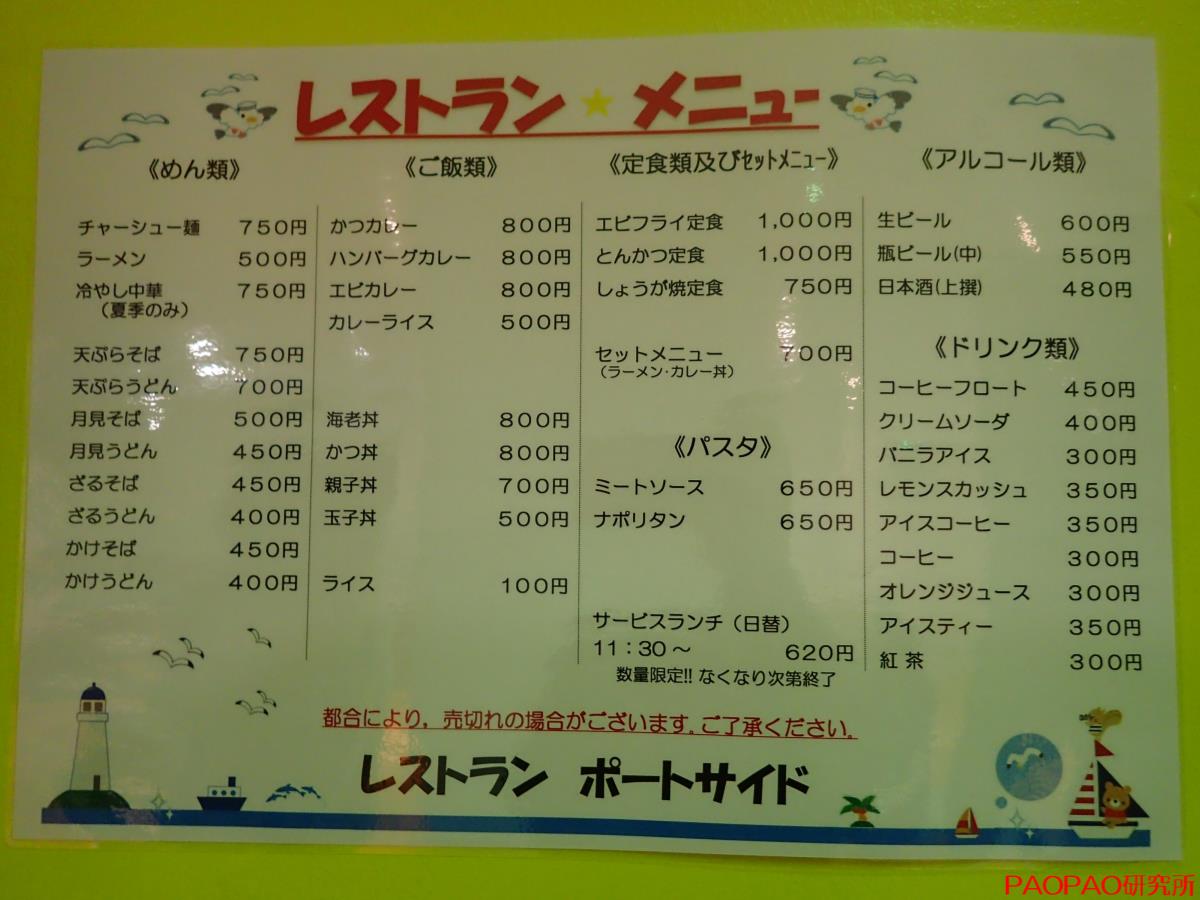 レストラン★メニュー
《めん類》
チャーシュー麺 750円
ラーメン 500円
冷やし中華 750円
(夏季のみ)
天ぷらそば 750円
天ぷらうどん 700円
月見そば 500円
月見うどん 450円
ざるそば 450円
ざるうどん 400円
かけそば 450円
かけうどん 400円
《ご飯類》
かつカレー 800円
ハンバーグカレー 800円
エビカレー 800円
カレーライス 500円
海老丼 800円
かつ丼 800円
親子丼 700円
玉子丼 500円
ライス 100円
《定食類及びセットメニュー》
エビフライ定食 1,000円
とんかつ定食 1,000円
しょうが焼定食 750円
セットメニュー 700円
(ラーメン・カレー丼)
《パスタ》
ミートソース 650円
ナポリタン 650円
サービスランチ(日替)
11:30~ 620円
数量限定!!なくなり次第終了
《アルコール類》
生ビール 600円
瓶ビール(中) 550円
日本酒(上撰) 480円
《ドリンク類》
コーヒーフロート 450円
クリームソーダ 400円
バニラアイス 300円
レモンスカッシュ 350円
アイスコーヒー 350円
コーヒー 300円
オレンジジュース 300円
アイスティー 350円
紅茶 300円
都合により,売切れの場合がございます。ご了承ください。
レストラン ポートサイド
PAOPAO研究所